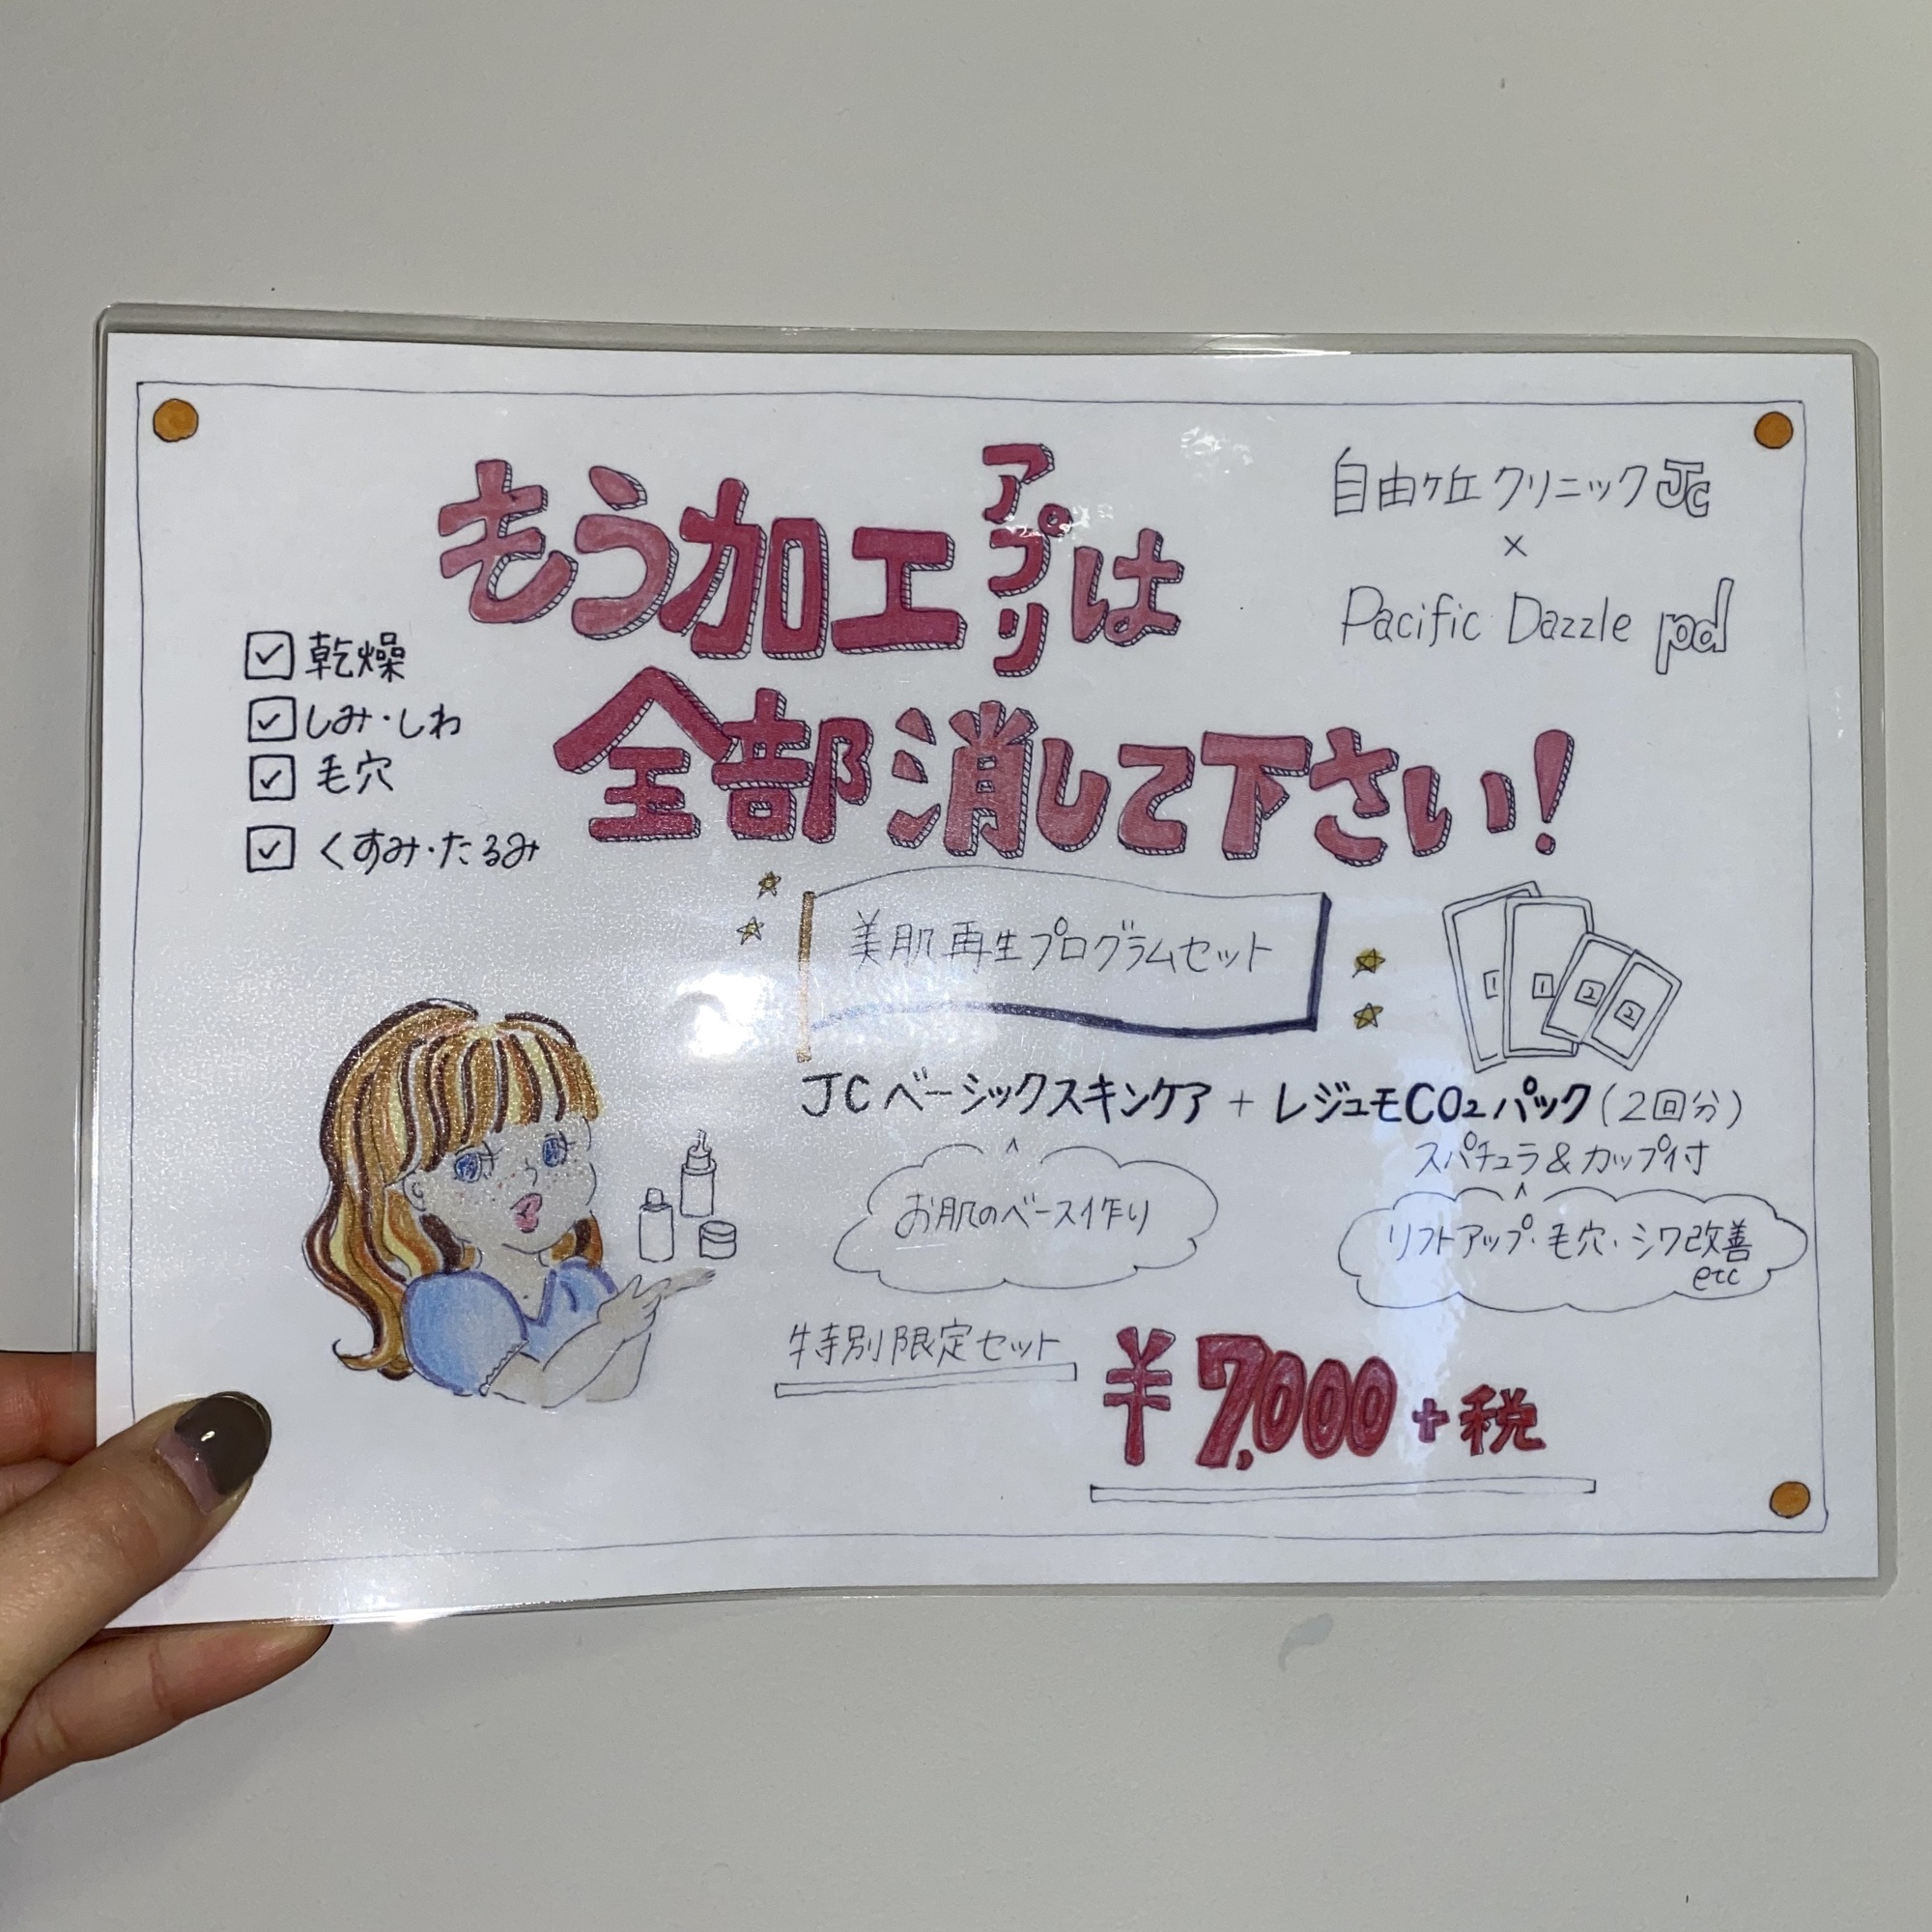 もう加工アプリは
全部消して下さい!
自由ヶ丘クリニック JC
×
Pacific Dazzle pd
☑ 乾燥
☑ しみ・しわ
☑ 毛穴
☑ くすみ・たるみ
美肌再生プログラムセット
1 1 2 2
JCベーシックスキンケア + レジュモCO2パック(2回分)
スパチュラ&カップ付
お肌のベース作り
リフトアップ・毛穴・シワ改善
etc
特別限定セット
¥7,000+税